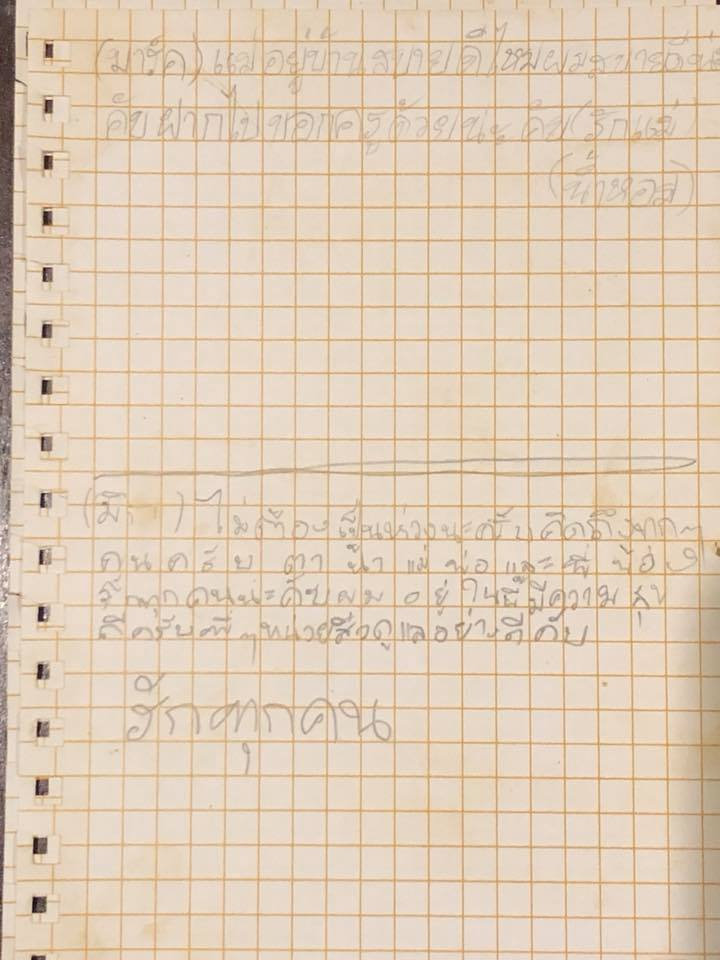 (มาร์ค) แม่อยู่บ้านสบายดีไหมผมสบายดี
คับฝากไปบอกครูด้วยนะคับ(รักแม่)
(น้ำหอม)
(มิ ) ไม่ต้องเป็นห่วงนะครับคิดถึงทุกๆ
คนครับ ตา น้า แม่ พ่อ และ พี่ น้อง
รักทุกคนนะคับผม อยู่ ในนี้ มีความสุข
ดีครับพี่ๆหน่วยซีวดูแลอย่างดีคับ
รักทุกคน